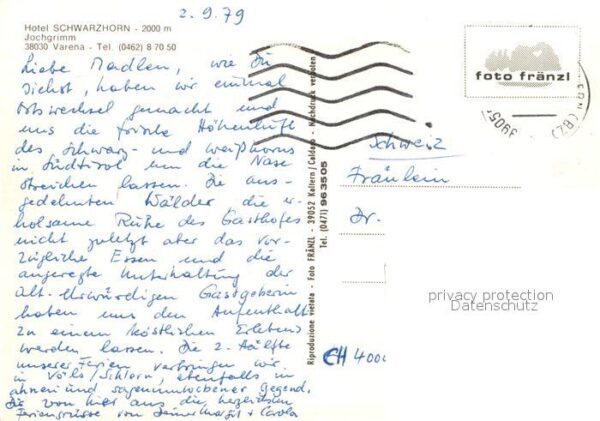 2.9.79
Hotel SCHWARZHORN - 2000 m
Jochgrimm
38030 Varena - Tel. (0462) 8 70 50
Liebe Madlen, wie Du
siehst, haben wir einmal
Ortswechsel gemacht und
uns die frische Höhenluft
des Schwarz- und Weißhorns
in Südtirol um die Nase
streichen lassen. Die aus-
gedehnten Wälder die er-
holsame Ruhe des Gasthofes
nicht zuletzt aber das vor-
zügliche Essen und die
angeregte Unterhaltung der
alt-ehrwürdigen Gastgeberin
haben uns den Aufenthalt
zu einem köstlichen Erlebnis
werden lassen. Die 2. Hälfte
unserer Ferien verbringen wir
in Völs/Schlern, ebenfalls in
und sagenumwobener Gegend.
Sie von hier aus die herzlichsten
Feriengrüsse von Deiner Margit + Carola
Riproduzione vietata - Foto FRÄNZL - 39052 Kaltern/Caldaro - Nachdruck verboten
Tel. (0471) 963505
foto fränzl
39052
(BZ)
Schweiz
Fräulein
Dr.
CH 4000
privacy protection
Datenschutz